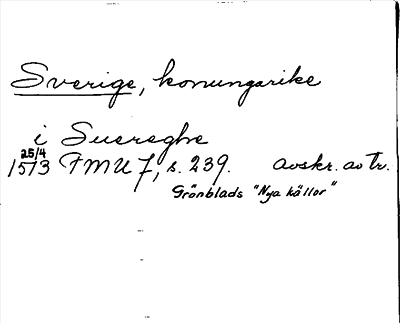 Sverige, konungarike
i Suereghe
25/4
1513 FMU 7, s. 239. avskr. av tr.
Grönblads "Nya källor"